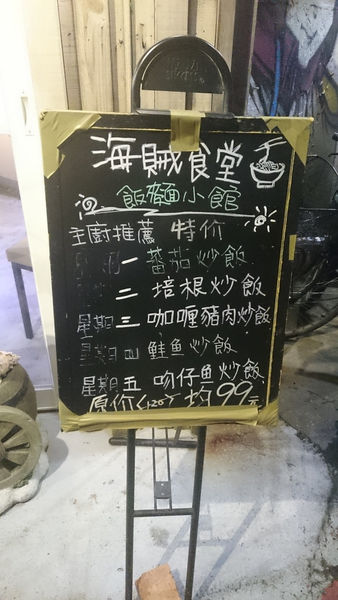 海賊食堂
飯麵小館
主廚推薦 特价
星期一 蕃茄炒飯
二 培根炒飯
星期三 咖喱豬肉炒飯
星期四 鮭鱼炒飯
星期五 吻仔鱼炒飯
原价(120) 均99元